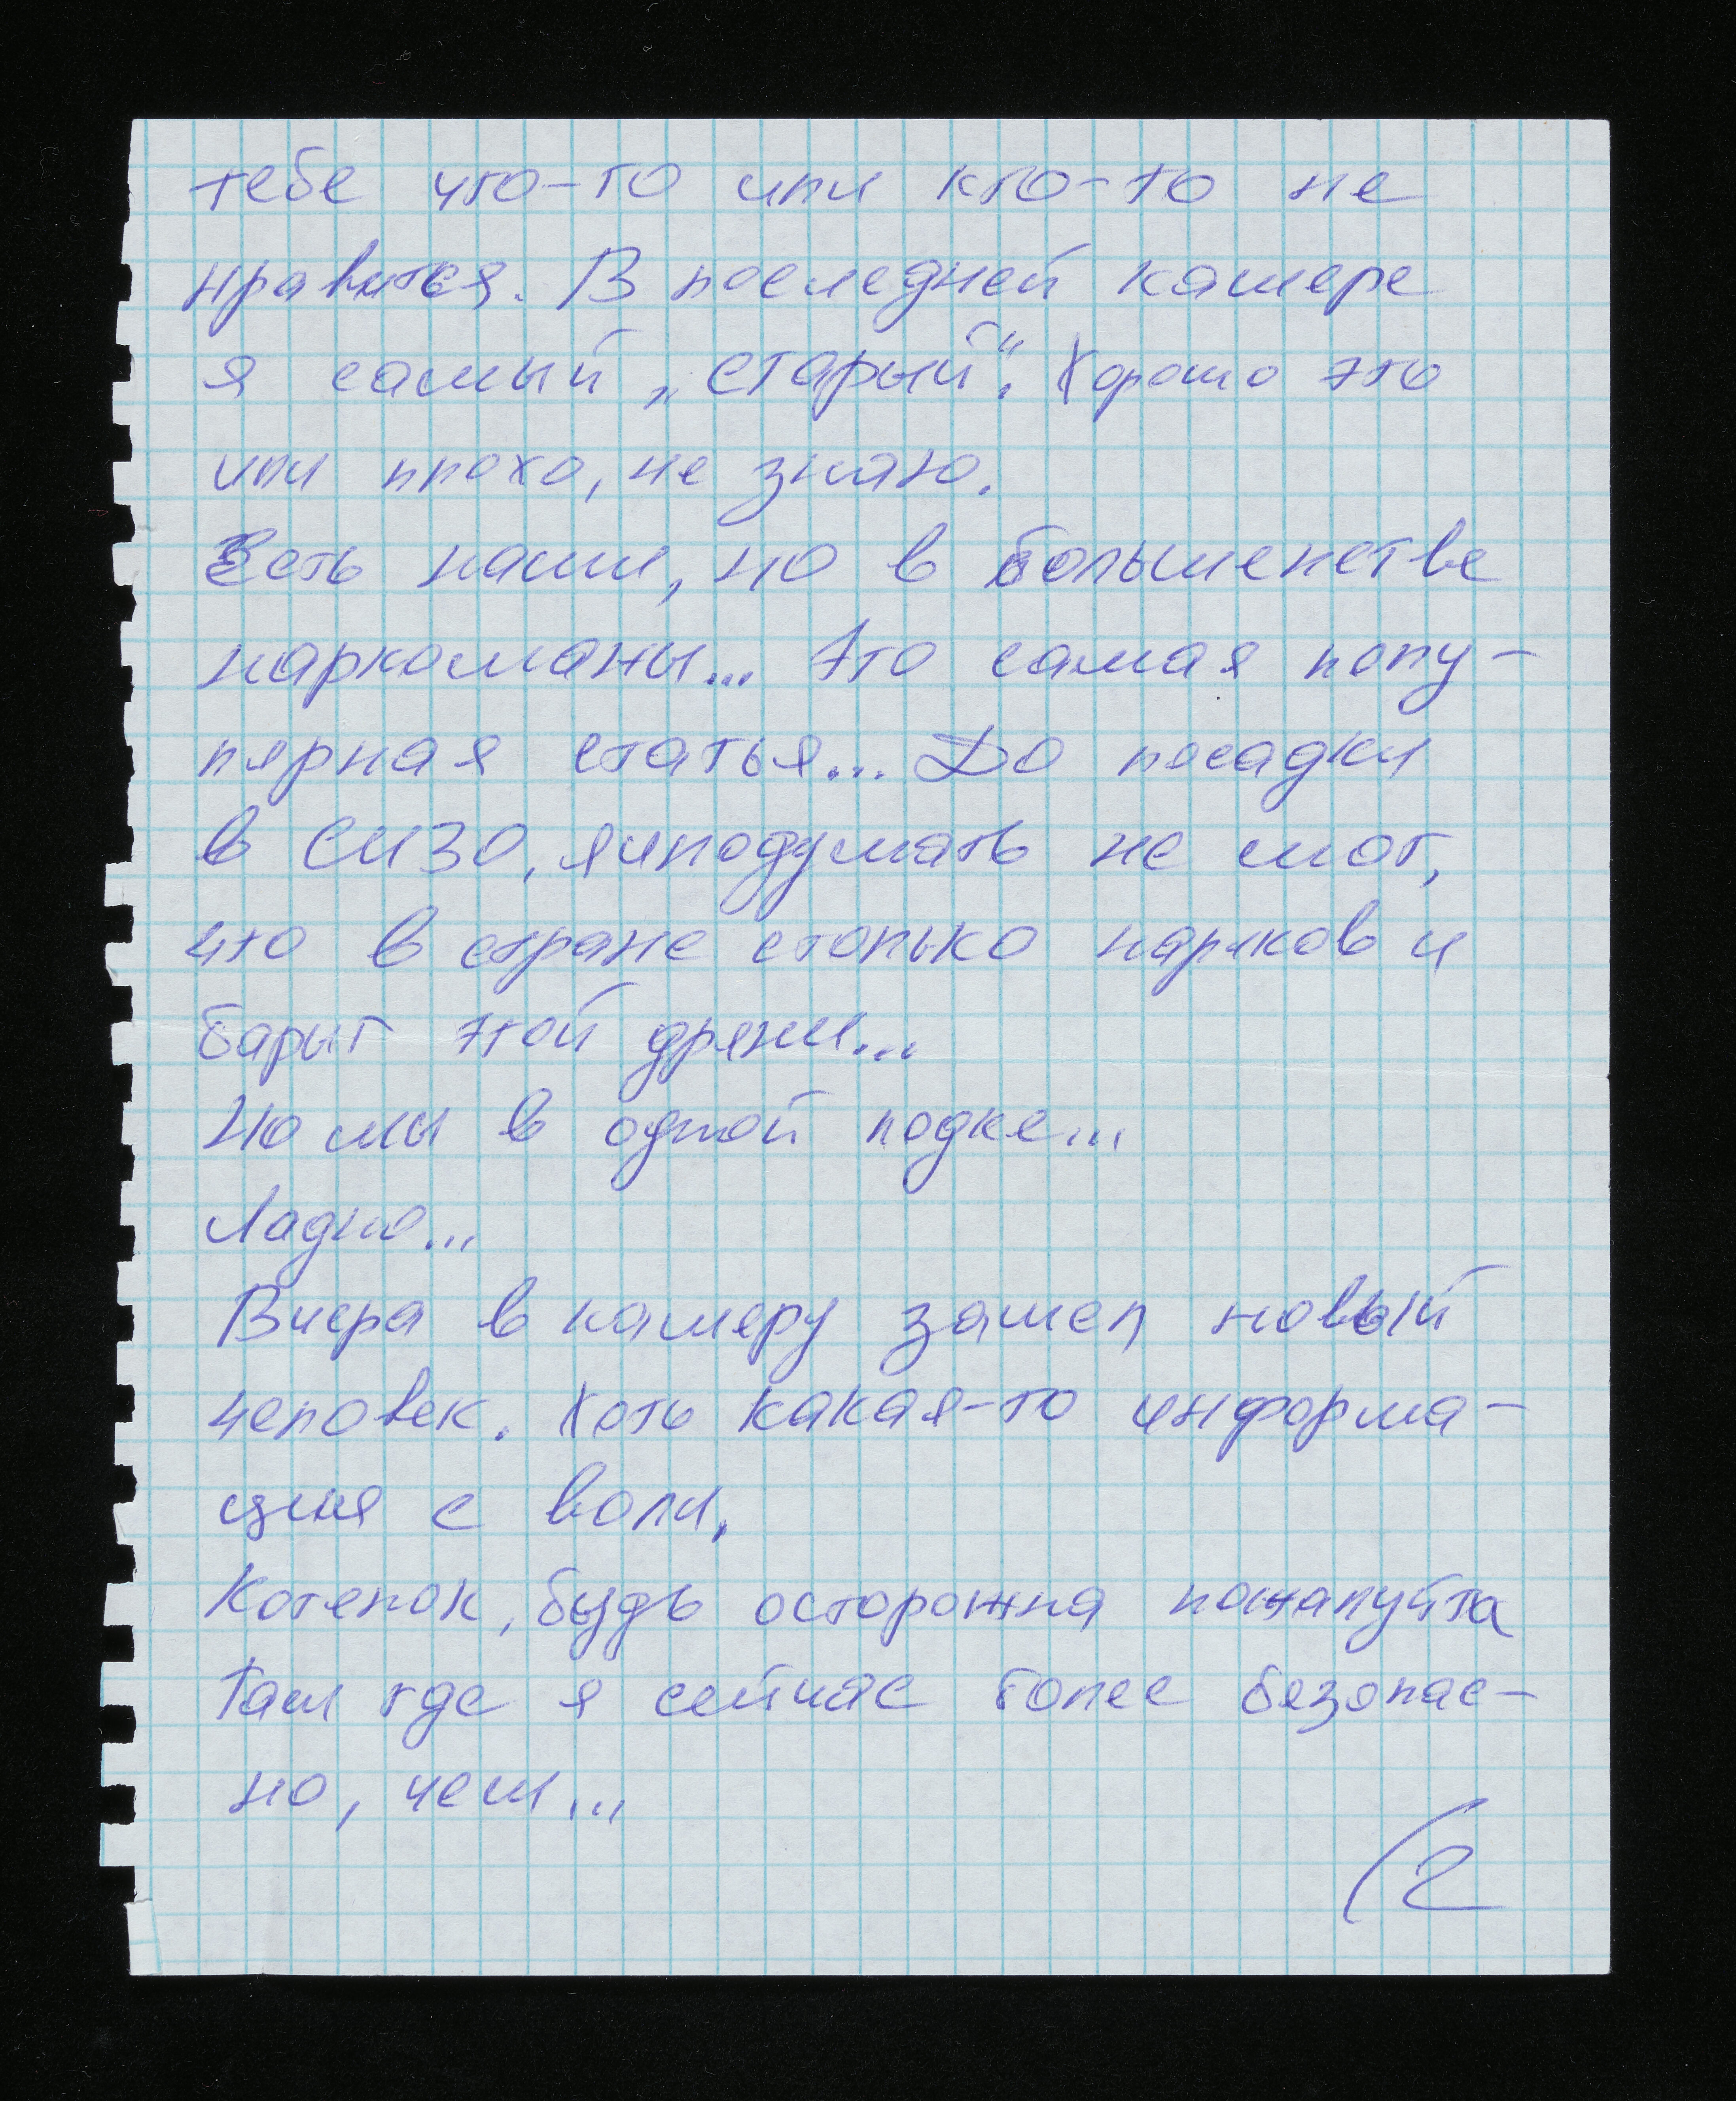 тебе что-то или кто-то не
нравится. В последней камере
я самый „старый“. Хорошо это
или плохо, не знаю.
Есть наши, но в большенстве
наркоманы... Это самая попу-
лярная статья... До посадки
в СИЗО, я и подумать не мог,
что в стране столько нарков и
барыг этой дряни...
Но мы в одной лодке...
Ладно...
Вчера в камеру зашел новый
человек. Хоть какая-то информа-
ция с воли.
Котенок, будь осторожна пожалуйта
Там где я сейчас более безопас-
но, чем...
(2